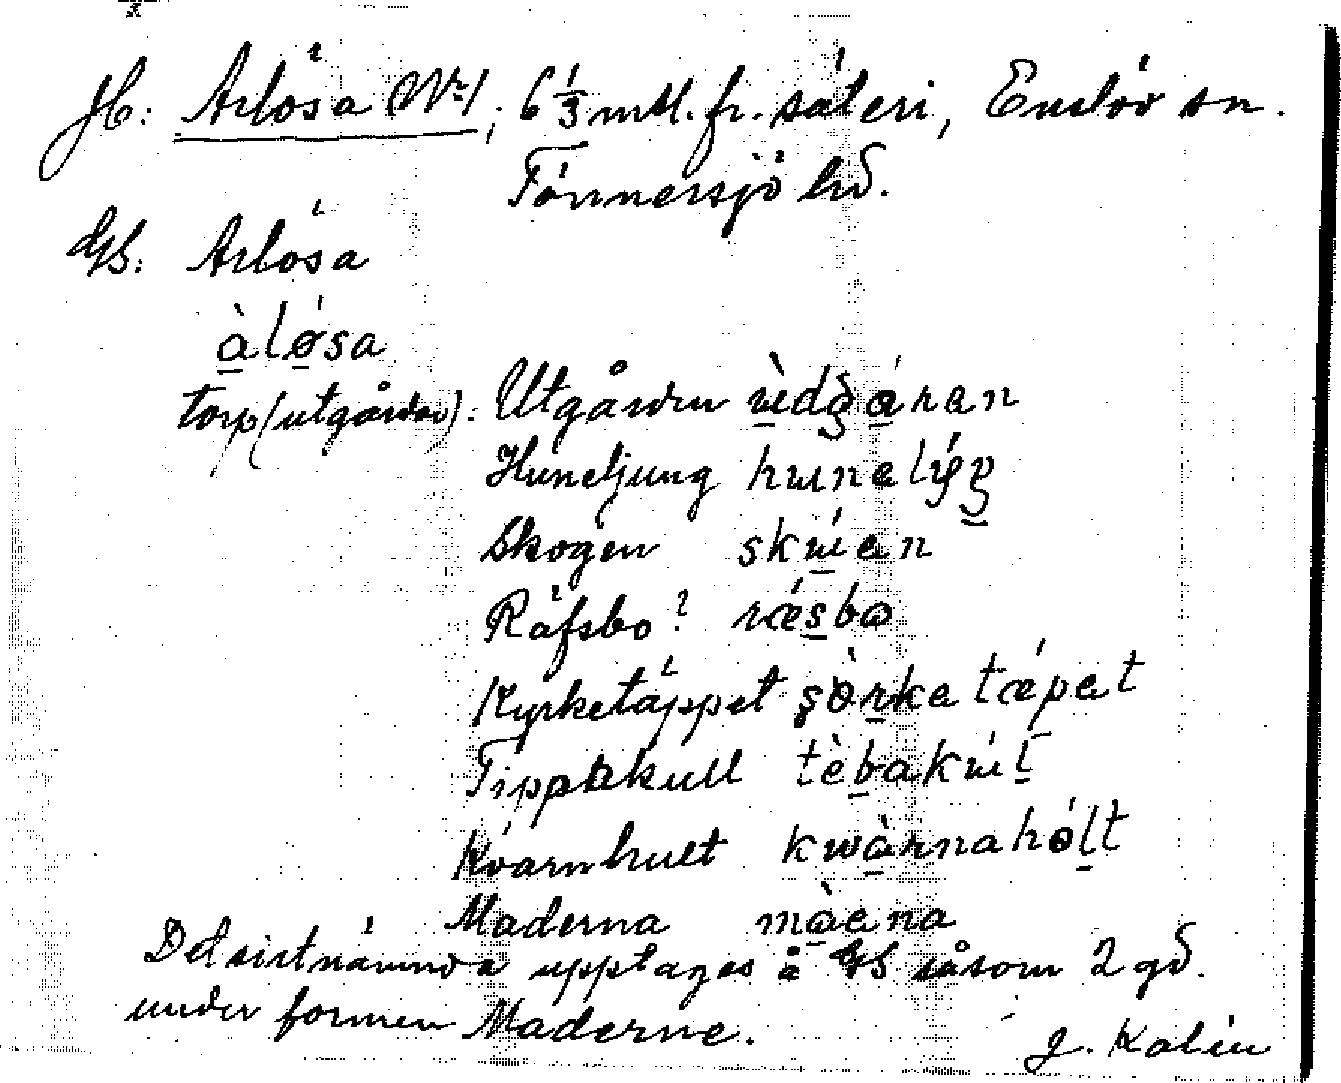 Jb: Arlösa No 1; 6 1/3 mtl. fr. säteri, Enslöv sn.
Tönnersjö hd.
GS: Arlösa
àlǿsa
torp (utgårdar): Utgården ùdgáran
Huneljung hunelýŋ
Skogen skúen
Räfsbo? ræ̀sbo
Kyrketäppet şö̀rketǽpet
Tippakull tèbakúl
Kvarnhult kwàrnahólt
Maderna màena
Det sistnämnda upptages å GS såsom 2 gd.
under formen Maderne.
J. Kalén